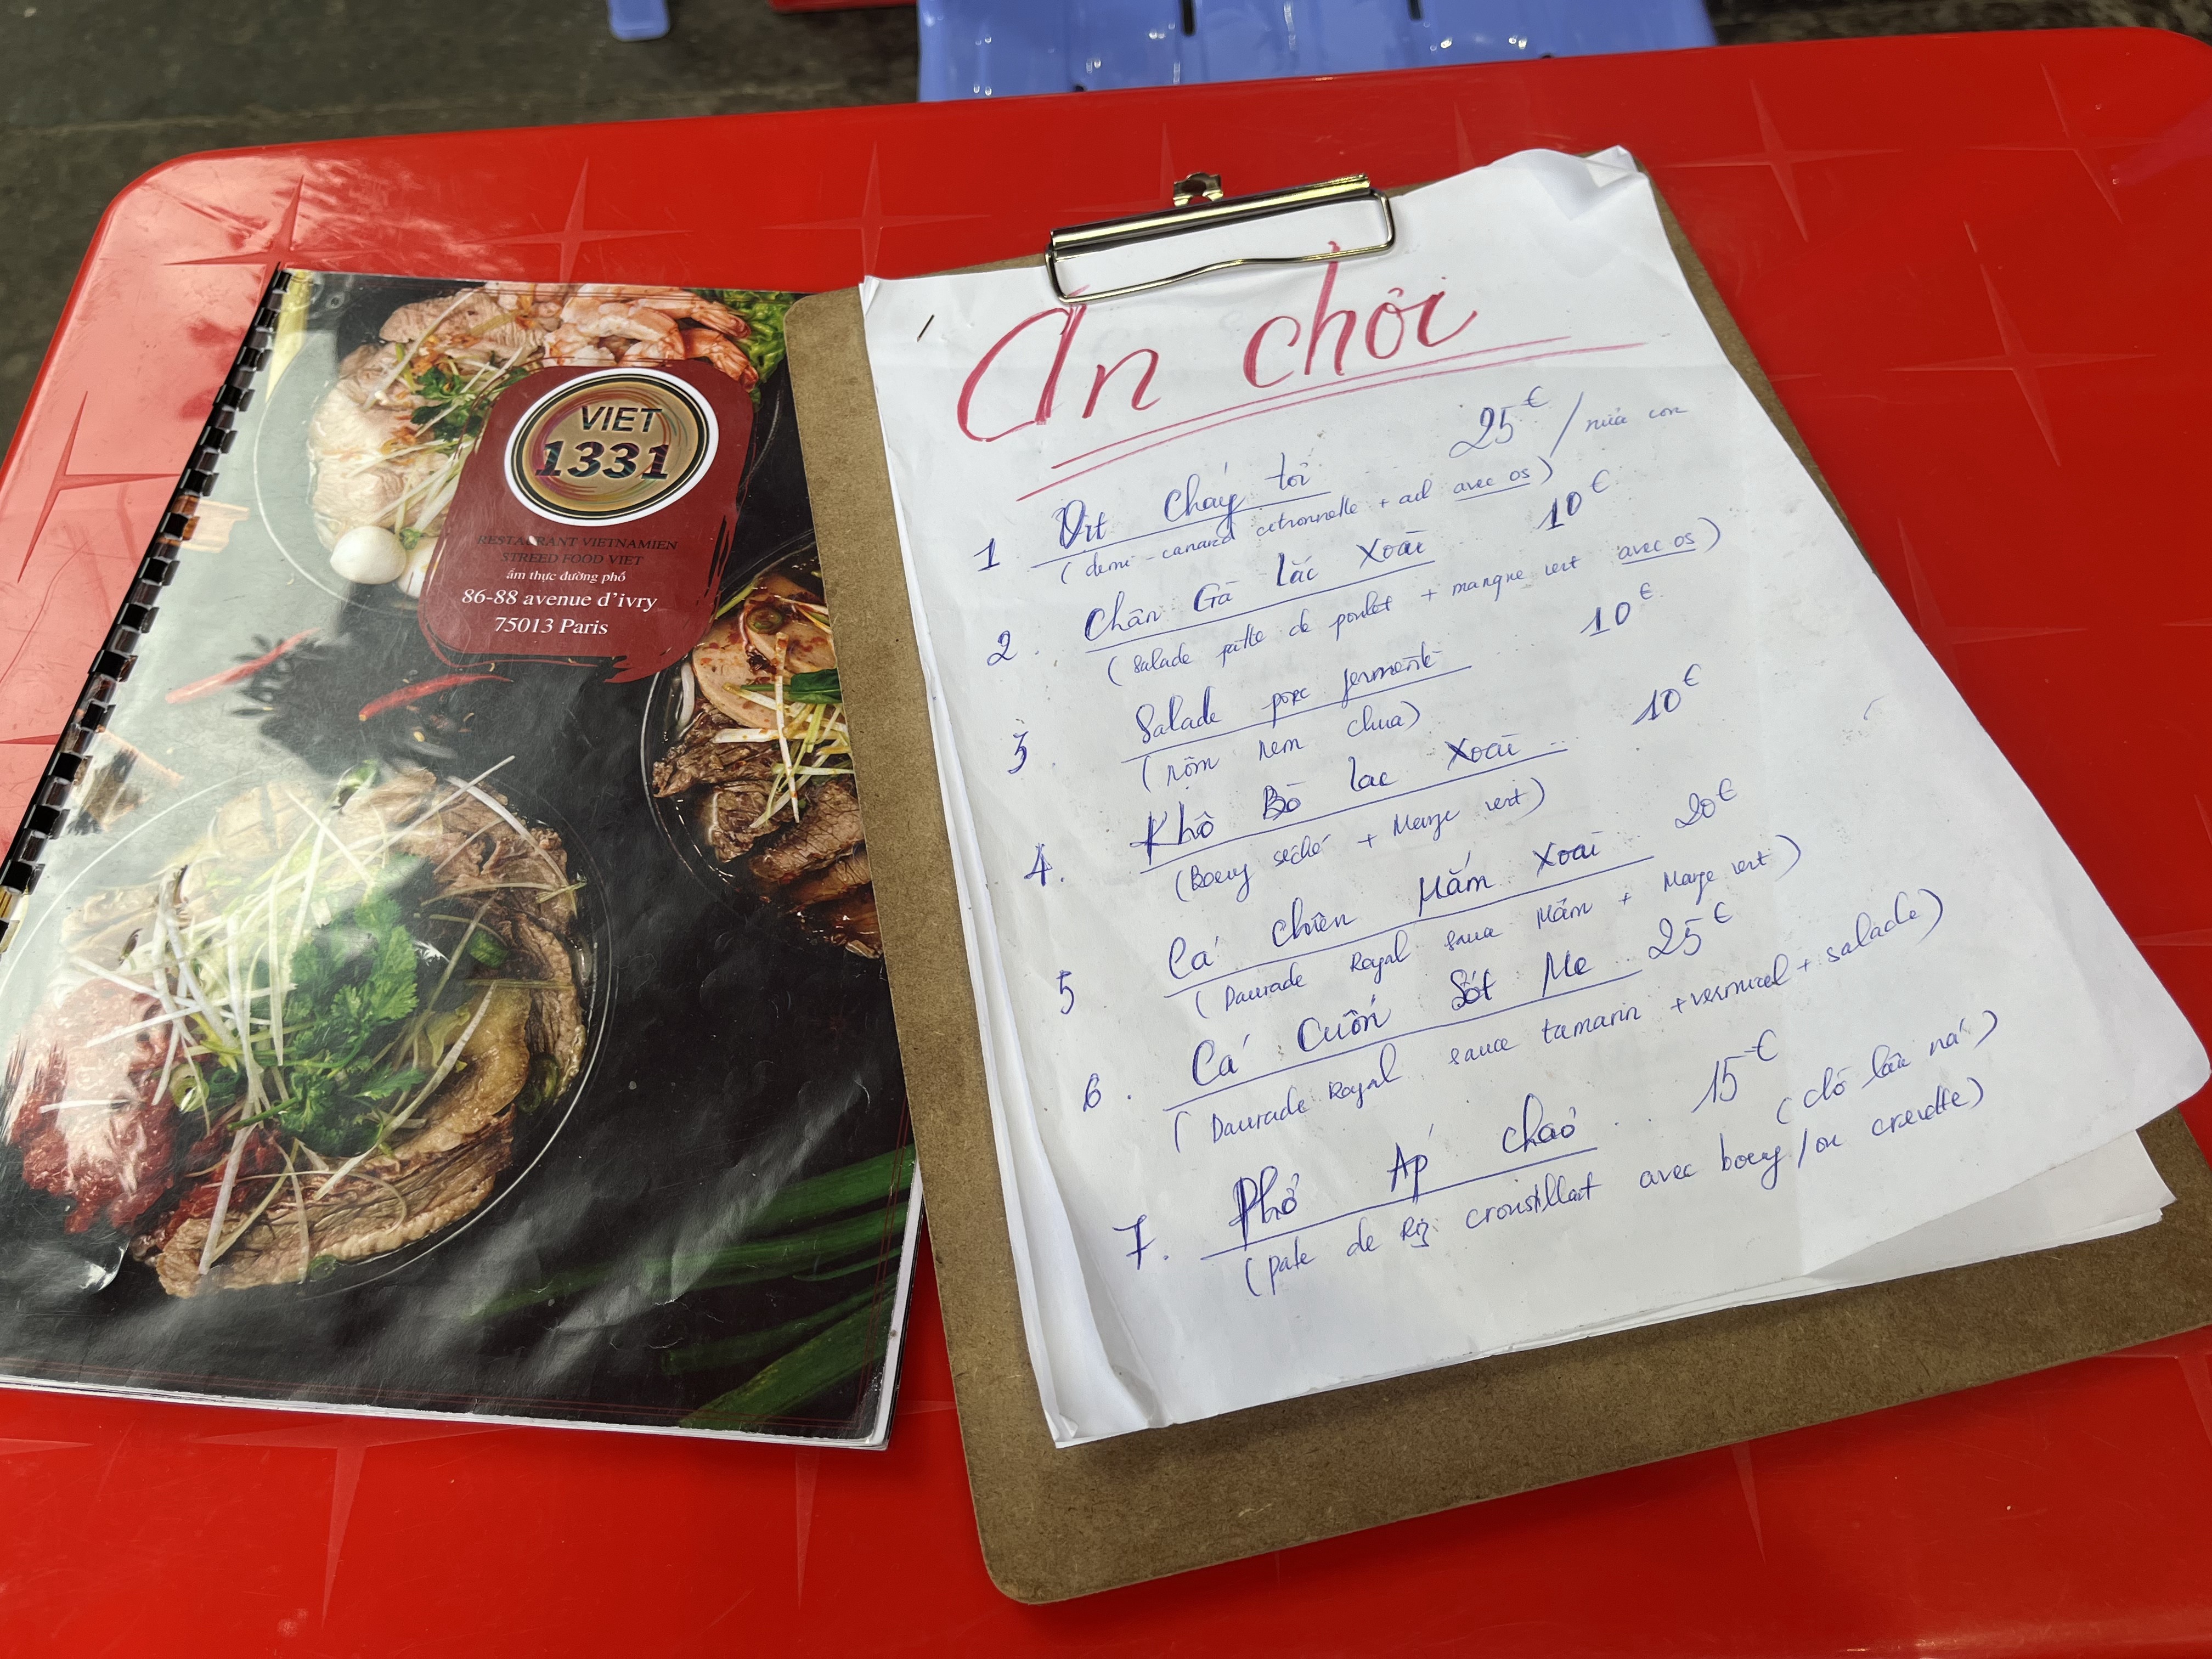 VIET
1331
RESTAURANT VIETNAMIEN
STREED FOOD VIET
ẩm thực đường phố
86-88 avenue d'ivry
75013 Paris
Ăn chơi
1 Vịt Cháy tỏi 25€ / nửa con
(demi-canard citronnelle + ail avec os)
2. Chân Gà lắc Xoài 10€
(salade patte de poulet + mangue vert avec os)
3. Salade porc fermenté 10€
(nộm nem chua)
4. Khô Bò lac Xoài .. 10€
(Boeuf séché + Mange vert)
5 Cá chiên Mắm Xoài 20€
(Daurade Royal sauce Mắm + Mange vert)
6. Cá Cuốn Sốt Me .. 25€
(Daurade Royal sauce tamarin + vermicel + salade)
7. Phở Áp chảo .. 15€
(pate de Riz croustillant avec boeuf / ou crevette)